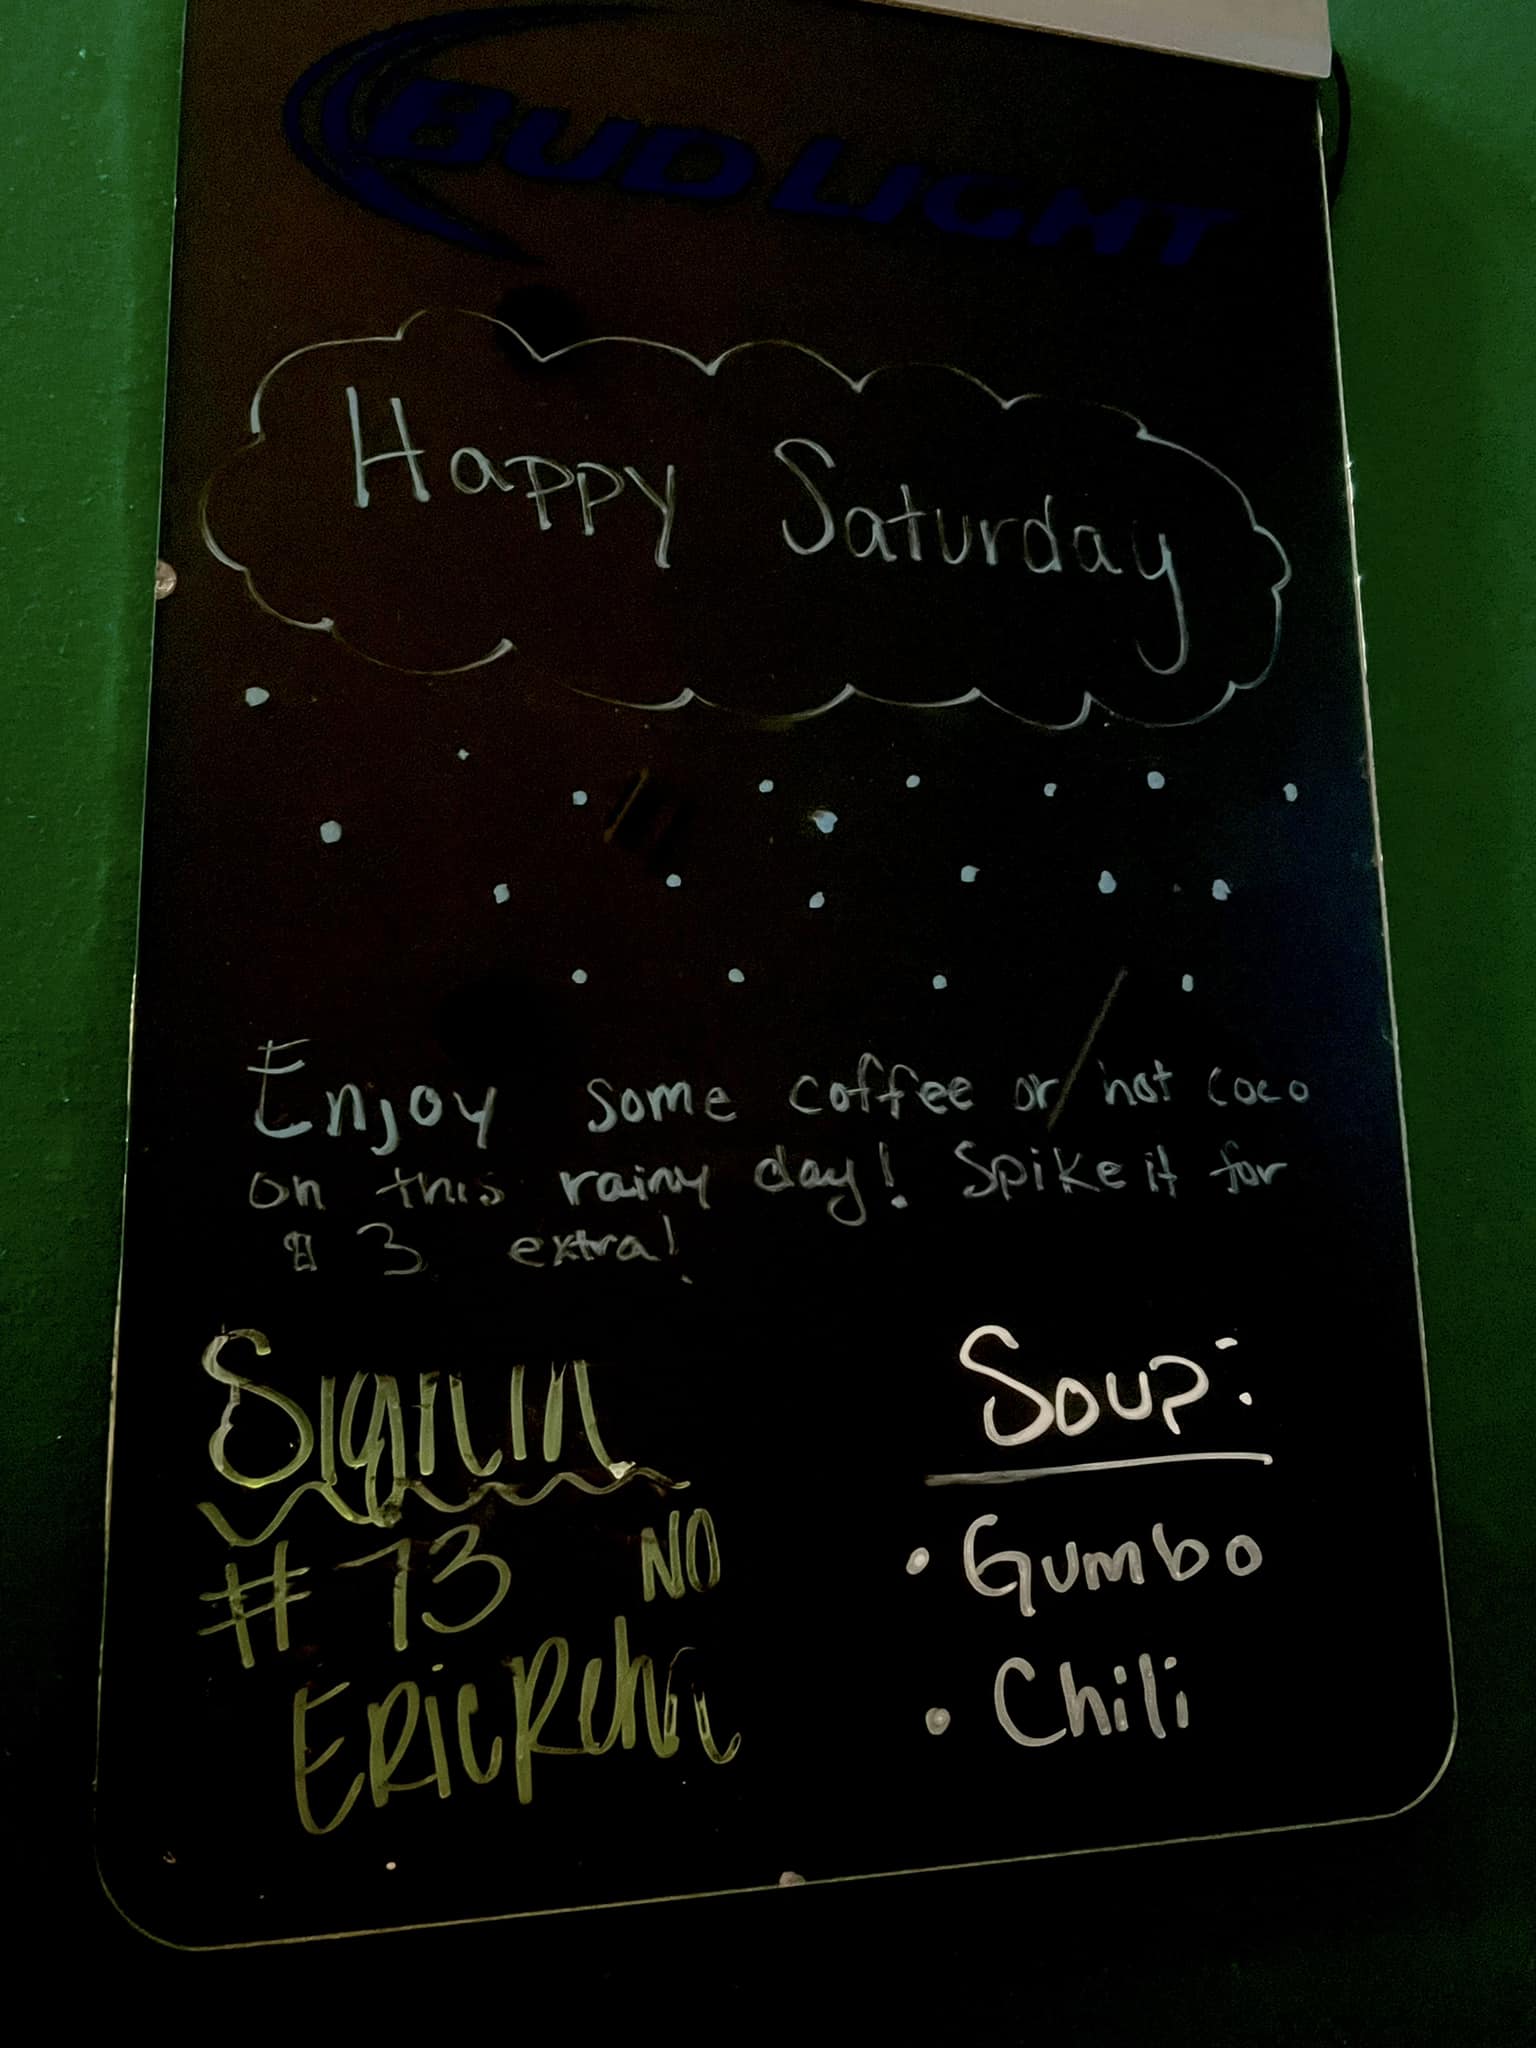 BUD LIGHT
Happy Saturday
Enjoy some coffee or hot coco
on this rainy day! Spike it for
$3 extra!
Sign in
#73 NO
Eric
Soup:
• Gumbo
• Chili